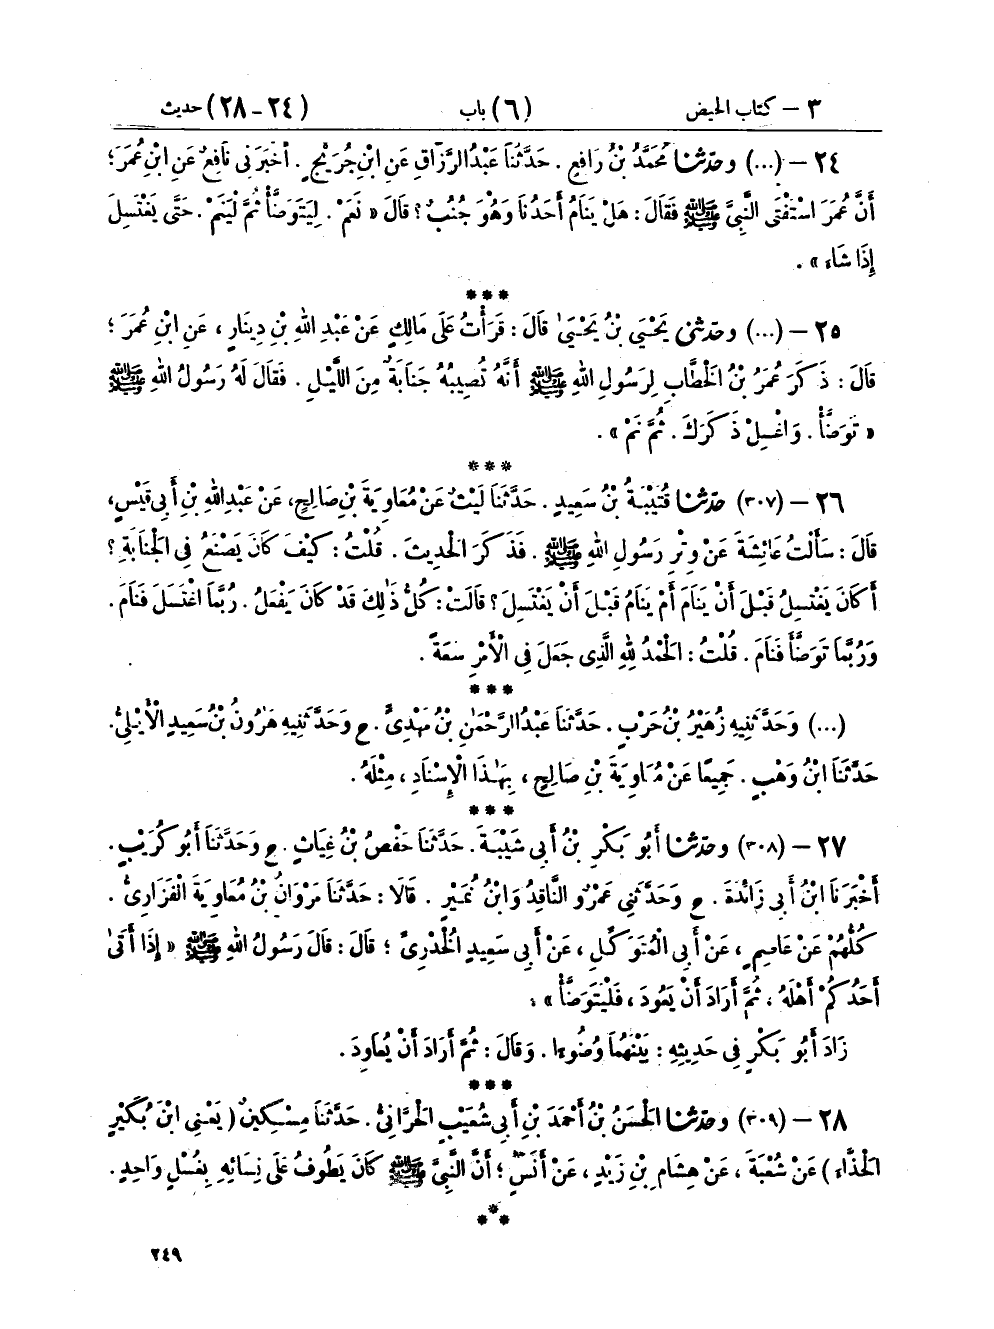 ٣ – كتاب الحيض (٦) باب (٢٤-٢٨) حديث
٢٤ – (...) وحدّثنا مُحَمَّدُ بْنُ رَافِعٍ . حَدَّثَنَا عَبْدُ الرَّزَّاقِ عَنِ ابْنِ جُرَيْجٍ . أَخْبَرَنِي نَافِعٌ عَنِ ابْنِ عُمَرَ ؛
أَنَّ عُمَرَ اسْتَفْتَى النَّبِيَّ ﷺ فَقَالَ : هَلْ يَنَامُ أَحَدُنَا وَهُوَ جُنُبٌ ؟ قَالَ « نَعَمْ . لِيَتَوَضَّأْ ثُمَّ لْيَنَمْ . حَتَّى يَغْتَسِلَ
إِذَا شَاءَ » .
***
٢٥ – (...) وحدّثنى يَحْيَىٰ بْنُ يَحْيَىٰ قَالَ : قَرَأْتُ عَلَى مَالِكٍ عَنْ عَبْدِ اللهِ بْنِ دِينَارٍ ، عَنِ ابْنِ عُمَرَ ؛
قَالَ : ذَكَرَ عُمَرُ بْنُ الْخَطَّابِ لِرَسُولِ اللهِ ﷺ أَنَّهُ تُصِيبُهُ جَنَابَةٌ مِنَ اللَّيْلِ . فَقَالَ لَهُ رَسُولُ اللهِ ﷺ
« تَوَضَّأْ . وَاغْسِلْ ذَكَرَكَ . ثُمَّ نَمْ » .
***
٢٦ – (٣٠٧) حدّثنا قُتَيْبَةُ بْنُ سَعِيدٍ . حَدَّثَنَا لَيْثٌ عَنْ مُعَاوِيَةَ بْنِ صَالِحٍ، عَنْ عَبْدِ اللهِ بْنِ أَبِي قَيْسٍ ،
قَالَ : سَأَلْتُ عَائِشَةَ عَنْ وِتْرِ رَسُولِ اللهِ ﷺ . فَذَكَرَ الْحَدِيثَ . قُلْتُ : كَيْفَ كَانَ يَصْنَعُ فِي الْجَنَابَةِ ؟
أَكَانَ يَغْتَسِلُ قَبْلَ أَنْ يَنَامَ أَمْ يَنَامُ قَبْلَ أَنْ يَغْتَسِلَ ؟ قَالَتْ : كُلُّ ذَٰلِكَ قَدْ كَانَ يَفْعَلُ . رُبَّمَا اغْتَسَلَ فَنَامَ .
وَرُبَّمَا تَوَضَّأَ فَنَامَ . قُلْتُ : الْحَمْدُ لِلهِ الَّذِي جَعَلَ فِي الْأَمْرِ سَعَةً .
***
(...) وَحَدَّثَنِيهِ زُهَيْرُ بْنُ حَرْبٍ . حَدَّثَنَا عَبْدُ الرَّحْمَٰنِ بْنُ مَهْدِيٍّ . ح وَحَدَّثَنِيهِ هَٰرُونُ بْنُ سَعِيدٍ الْأَيْلِيُّ .
حَدَّثَنَا ابْنُ وَهْبٍ . جَمِيعًا عَنْ مُعَاوِيَةَ بْنِ صَالِحٍ ، بِهَٰذَا الْإِسْنَادِ ، مِثْلَهُ .
***
٢٧ – (٣٠٨) وحدّثنا أَبُو بَكْرِ بْنُ أَبِي شَيْبَةَ . حَدَّثَنَا حَفْصُ بْنُ غِيَاثٍ . ح وَحَدَّثَنَا أَبُو كُرَيْبٍ .
أَخْبَرَنَا ابْنُ أَبِي زَائِدَةَ . ح وَحَدَّثَنِي عَمْرٌو النَّاقِدُ وَابْنُ نُمَيْرٍ . قَالَا : حَدَّثَنَا مَرْوَانُ بْنُ مُعَاوِيَةَ الْفَزَارِيُّ .
كُلُّهُمْ عَنْ عَاصِمٍ ، عَنْ أَبِي الْمُتَوَكِّلِ ، عَنْ أَبِي سَعِيدٍ الْخُدْرِيِّ ؛ قَالَ : قَالَ رَسُولُ اللهِ ﷺ « إِذَا أَتَىٰ
أَحَدُكُمْ أَهْلَهُ ، ثُمَّ أَرَادَ أَنْ يَعُودَ ، فَلْيَتَوَضَّأْ » .
زَادَ أَبُو بَكْرٍ فِي حَدِيثِهِ : بَيْنَهُمَا وُضُوءًا . وَقَالَ : ثُمَّ أَرَادَ أَنْ يُعَاوِدَ .
***
٢٨ – (٣٠٩) وحدّثنا الْحَسَنُ بْنُ أَحْمَدَ بْنِ أَبِي شُعَيْبٍ الْحَرَّانِيُّ . حَدَّثَنَا مِسْكِينٌ ( يَعْنِي ابْنَ بُكَيْرٍ
الْحَذَّاءَ ) عَنْ شُعْبَةَ ، عَنْ هِشَامِ بْنِ زَيْدٍ ، عَنْ أَنَسٍ ؛ أَنَّ النَّبِيَّ ﷺ كَانَ يَطُوفُ عَلَى نِسَائِهِ بِغُسْلٍ وَاحِدٍ .
***
٢٤٩